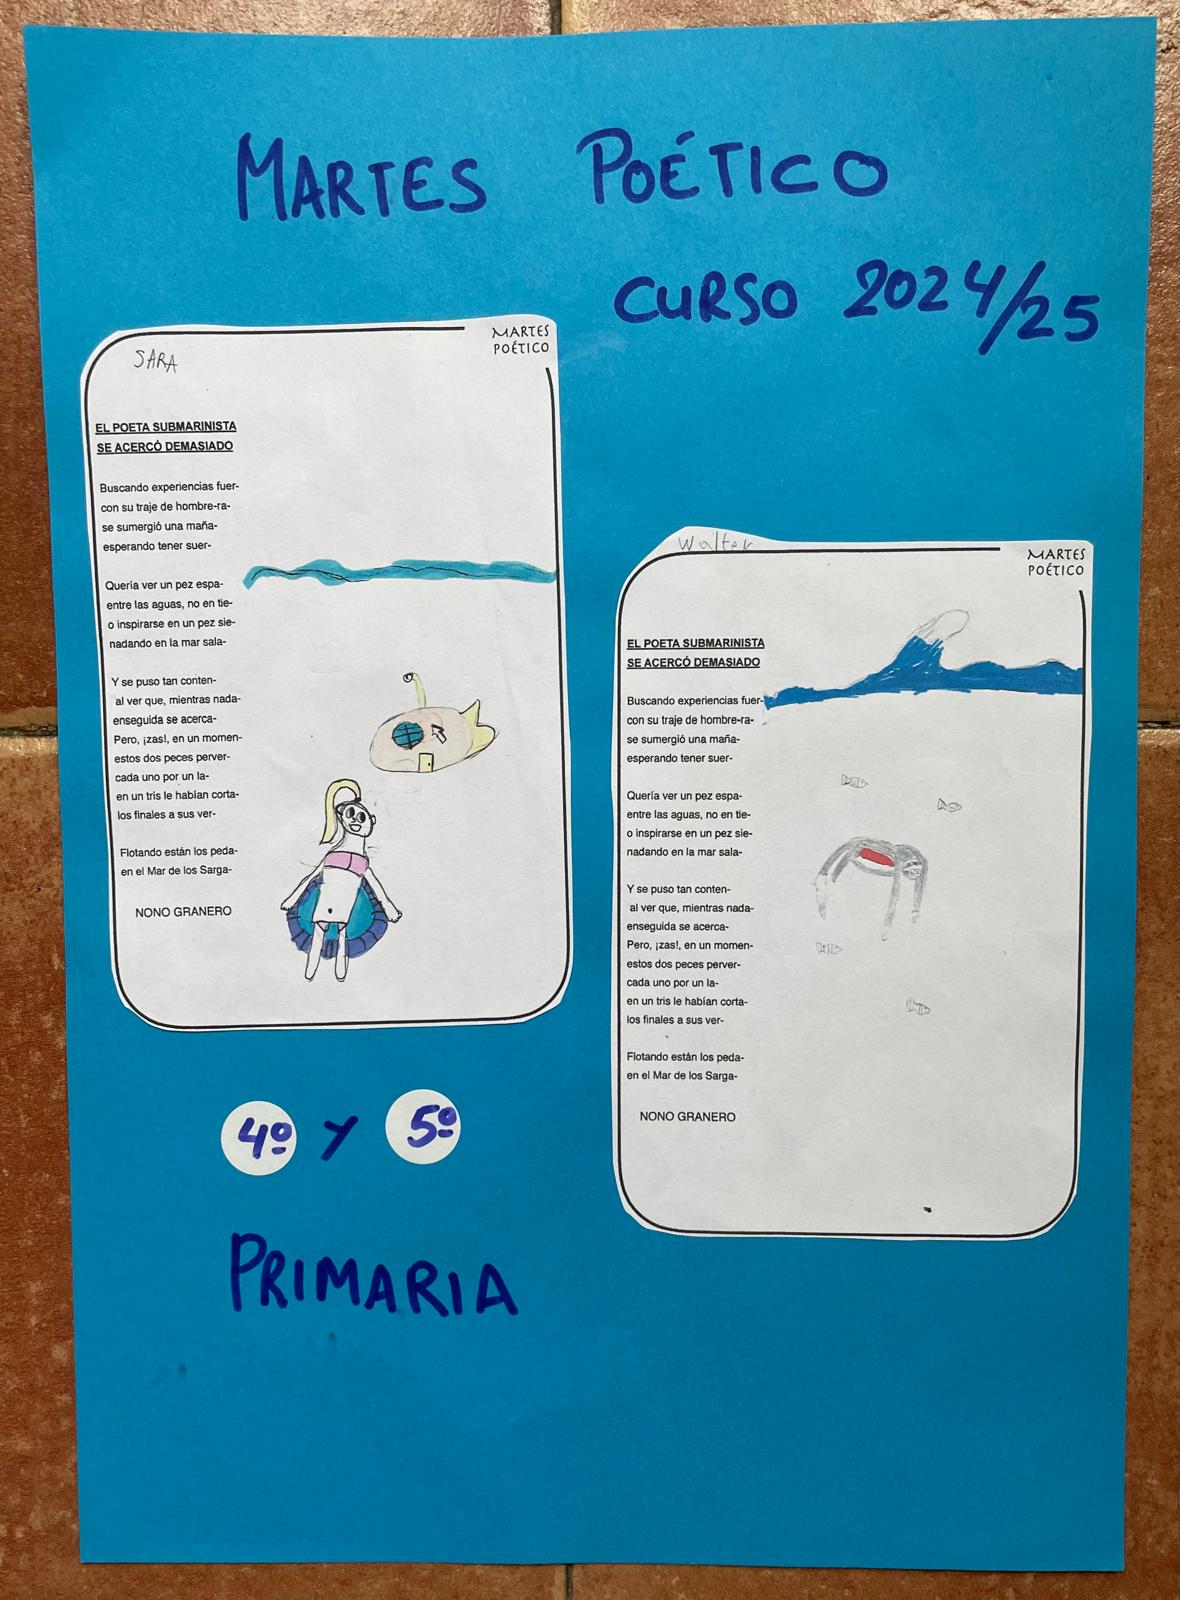 MARTES POÉTICO
CURSO 2024/25
SARA
MARTES
POÉTICO
EL POETA SUBMARINISTA
SE ACERCÓ DEMASIADO
Buscando experiencias fuer-
con su traje de hombre-ra-
se sumergió una maña-
esperando tener suer-
Quería ver un pez espa-
entre las aguas, no en tie-
o inspirarse en un pez sie-
nadando en la mar sala-
Y se puso tan conten-
al ver que, mientras nada-
enseguida se acerca-
Pero, ¡zas!, en un momen-
estos dos peces perver-
cada uno por un la-
en un tris le habían corta-
los finales a sus ver-
Flotando están los peda-
en el Mar de los Sarga-
NONO GRANERO
Walter
MARTES
POÉTICO
EL POETA SUBMARINISTA
SE ACERCÓ DEMASIADO
Buscando experiencias fuer-
con su traje de hombre-ra-
se sumergió una maña-
esperando tener suer-
Quería ver un pez espa-
entre las aguas, no en tie-
o inspirarse en un pez sie-
nadando en la mar sala-
Y se puso tan conten-
al ver que, mientras nada-
enseguida se acerca-
Pero, ¡zas!, en un momen-
estos dos peces perver-
cada uno por un la-
en un tris le habían corta-
los finales a sus ver-
Flotando están los peda-
en el Mar de los Sarga-
NONO GRANERO
4º Y 5º
PRIMARIA